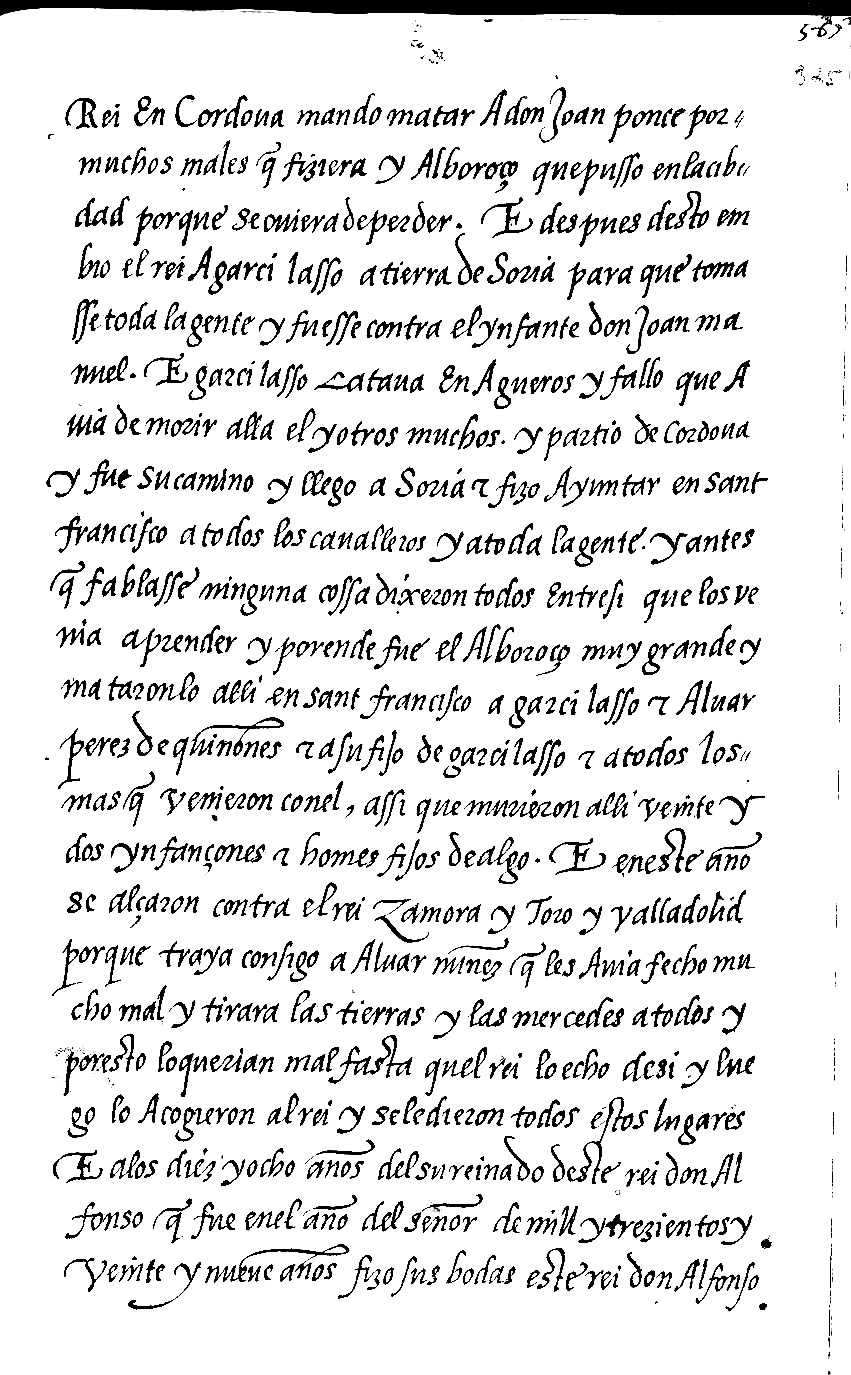 567
325
Rei En Cordoua mando matar A don Joan ponce por
muchos males q̃ fiziera y Alboroço que pusso en la cib
dad porque se ouiera de perder. E despues desto em
bio el rei A garci lasso a tierra de Soria para que toma
sse toda la gente y fuesse contra el ynfante don Joan ma
nuel. E garci lasso Cataua En Agueros y fallo que A
uia de morir alla el y otros muchos. y partio de Cordoua
y fue su camino y llego a Soria τ fizo Ayuntar en sant
francisco a todos los caualleros y a toda la gente. y antes
q̃ fablasse ninguna cossa dixeron todos Entresi que los ve
nia aprender y por ende fue el Alboroço muy grande y
mataron lo alli en sant francisco a garci lasso τ Aluar
perez de quiñones τ a su fijo de garci lasso τ a todos los
mas q̃ venieron con el, assi que murieron alli veinte y
dos ynfançones τ homes fijos de algo. E en este año
se alçaron contra el rei Zamora y Toro y valladolid
porque traya consigo a Aluar nuñez q̃ les Auia fecho mu
cho mal y tirara las tierras y las mercedes a todos y
por esto lo querian mal fasta quel rei lo echo de si y lue
go lo Acogieron al rei y se le dieron todos estos lugares
E a los diez y ocho años del su reinado deste rei don Al
fonso q̃ fue en el año del señor de mill y trezientos y
veinte y nueue años fizo sus bodas este rei don Alfonso